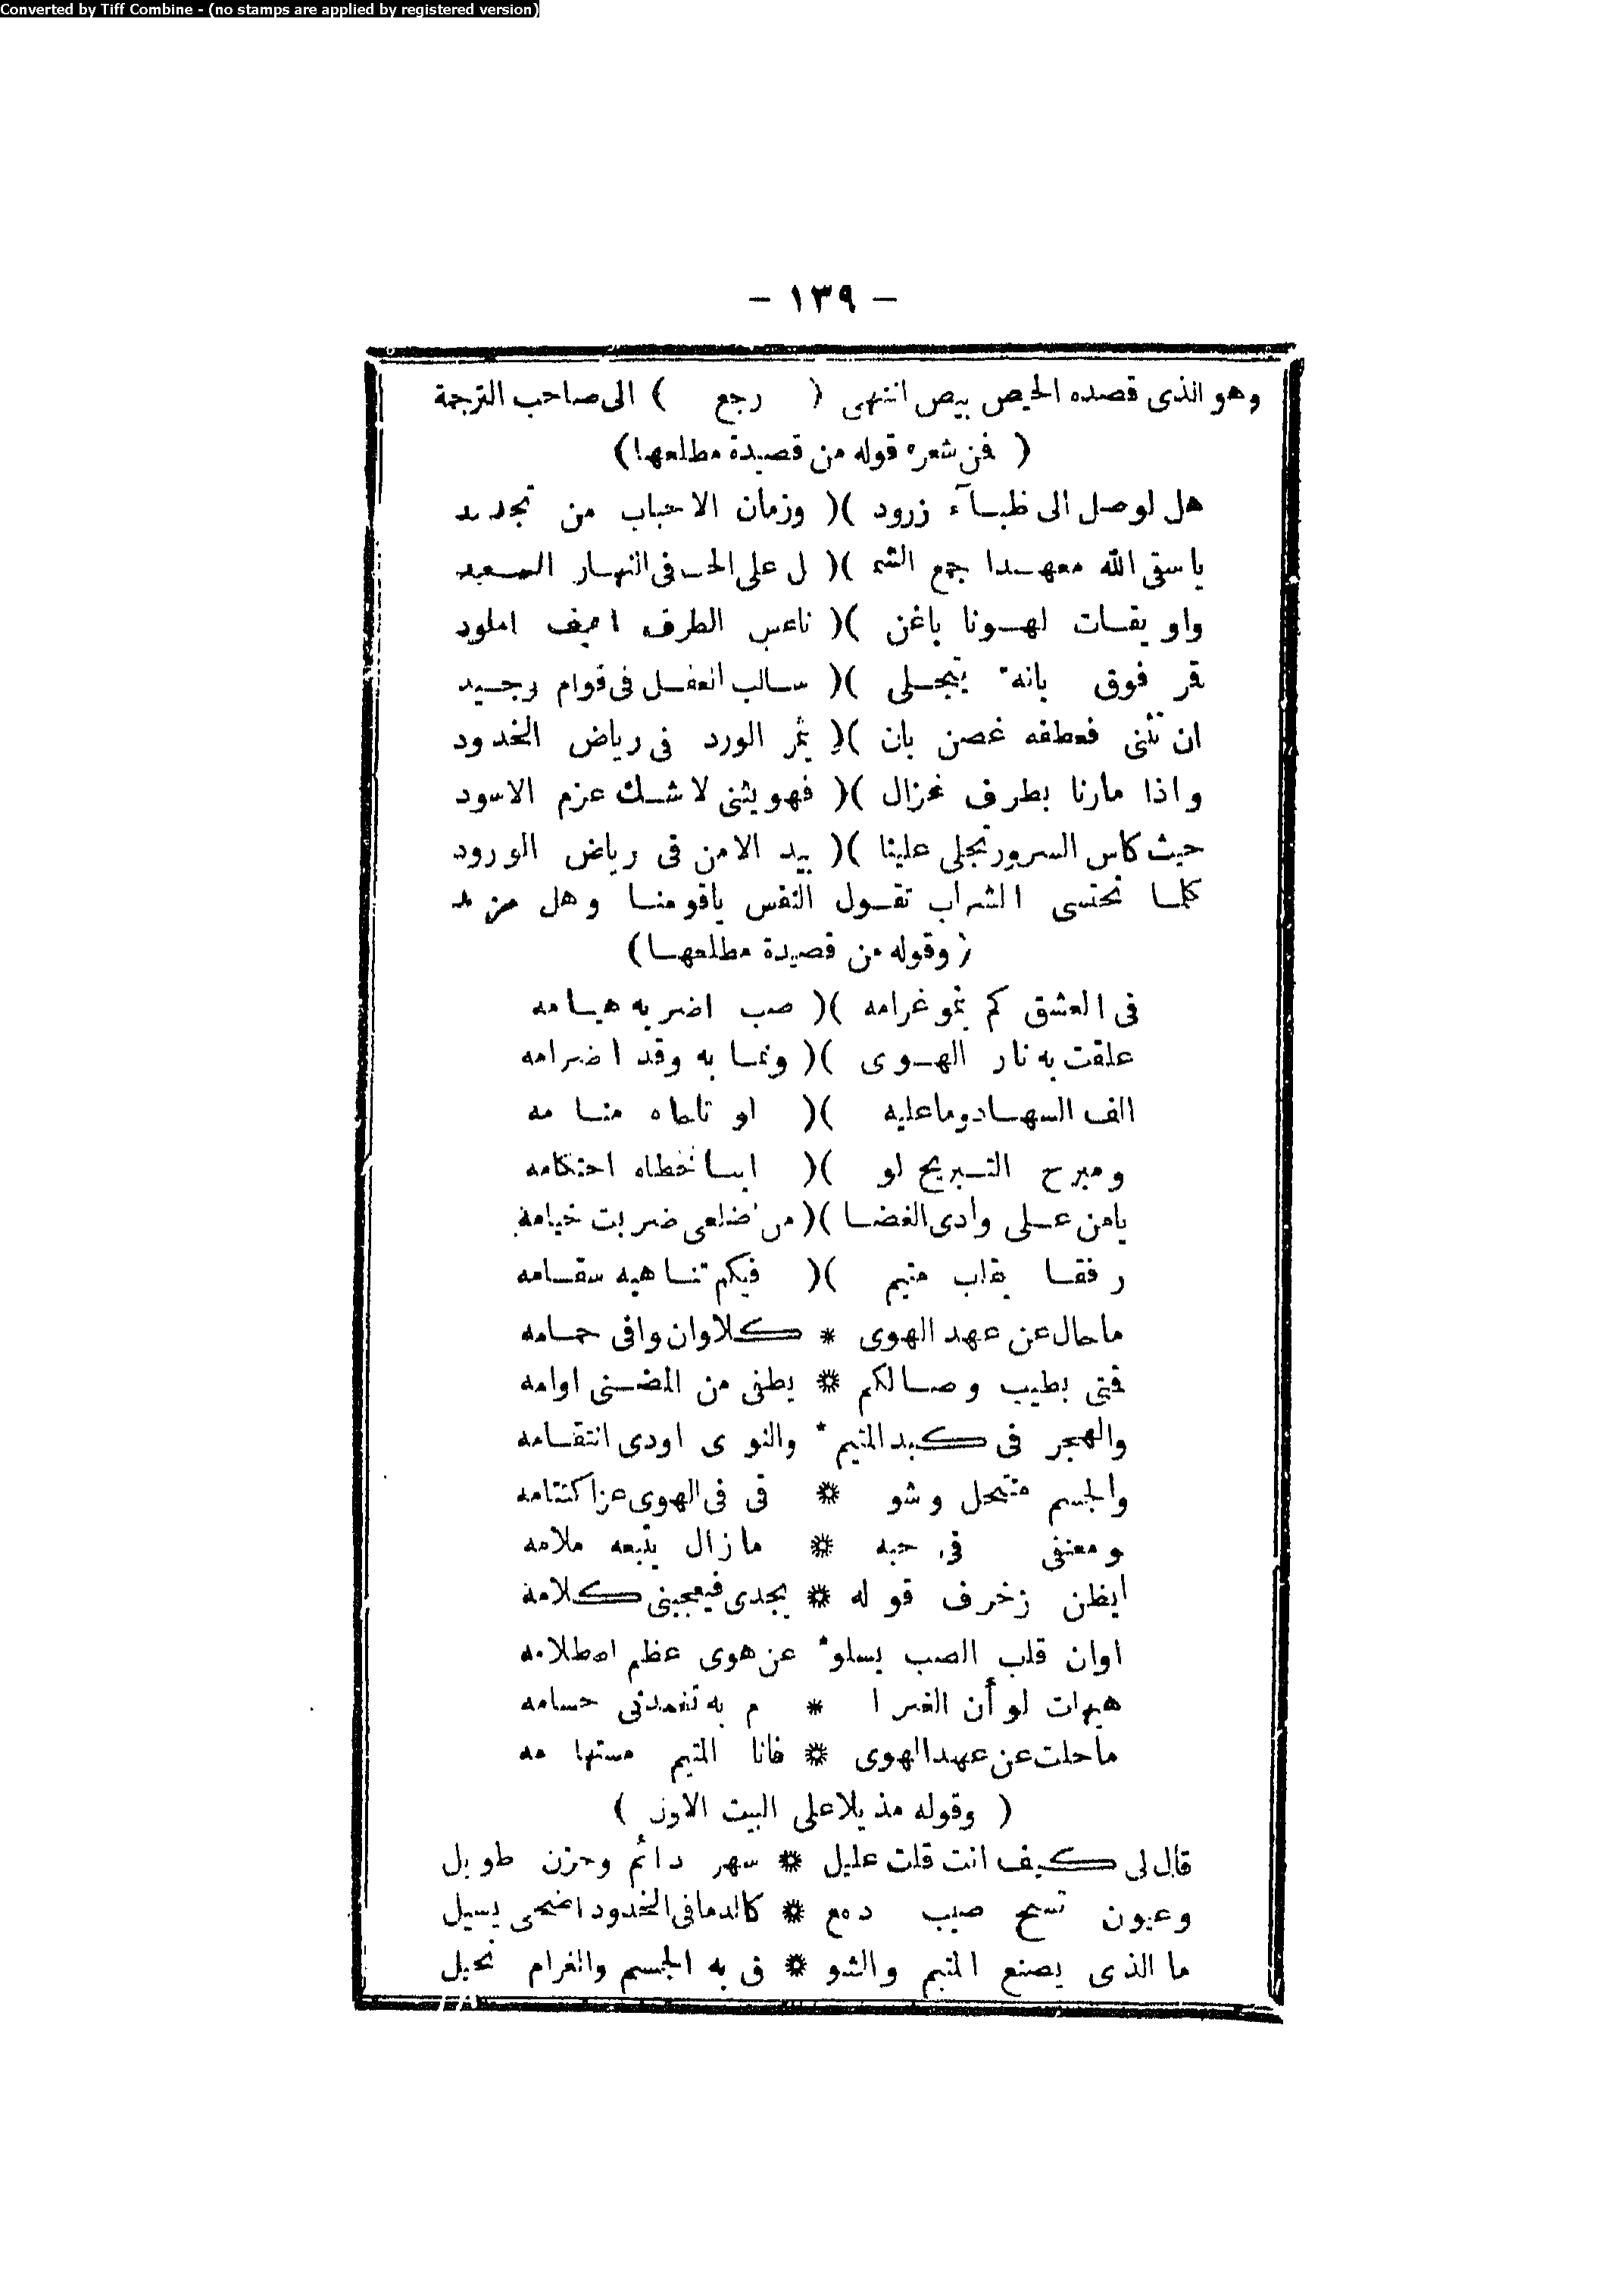 Converted by Tiff Combine - (no stamps are applied by registered version)
— ١٣٩ —
وهو الذى قصده الحيص بيص انتهى ( رجع ) الى صاحب الترجمة
( فمن شعره قوله من قصيدة مطلعها )
هل لوصل الى ظبـاء زرود )( وزمان الاحباب من تجديد
ياسقى الله معهـدا جمع الشم )( ل على الحب فى النهـار السـعيد
واويقـات لهـونا باغن )( ناعس الطرف اهيف املود
قمر فوق بانة يتجـلى )( سـالب العقـل فى قوام وجـيد
ان تثنى فعطفه غصن بان )( يثمر الورد فى رياض الخدود
واذا مارنا بطرف غزال )( فهو يثنى لاشـك عزم الاسود
حيث كاس السرور تجلى علينا )( بيد الامن فى رياض الورود
كلمـا نحتسى الشراب تقـول النفس ياقومنـا وهل مزيد
( وقوله من قصيدة مطلعهـا )
فى العشق كم ينمو غرامه )( صب اضر به هيـامه
علقت به نار الهـوى )( ونمـا به وقد اضرامه
الف السهـاد وماعليه )( لو تاطاه منـامه
ومبرح التـبريح لو )( احتكامه
يامن عـلى وادى الغضـا )( من ضلعى ضربت خيامه
رفقـا بقلب متيم )( فيكم تنـاهيه سقـامه
ماحال عن عهد الهوى * كلا وان وافى حمـامه
فمتى بطيب وصـالكم * يطفى من المضـنى اوامه
والهجر فى كبد المتيم * والنوى اودى انتقـامه
والجسم منتحل وشو * قى فى الهوى عزاكتتامه
ومعنفى فى حبه * مازال يتبعه ملامه
ايظن زخرف قوله * يجدى فيعجبنى كلامه
اوان قلب الصب يسلو * عن هوى عظم اصطلامه
هيهات لو أن الغرا * م به تغمدنى حسامه
ماحلت عن عهد الهوى * فانا المتيم مستهامه
( وقوله مذيلا على البيت الاول )
قال لى كيف انت قلت عليل * سهر دائم وحزن طويل
وعيون تسيح صيب دمع * كالدما فى الخدود اضحى يسيل
ما الذى يصنع المتيم والشو * ق به الجسم والغرام نحيل